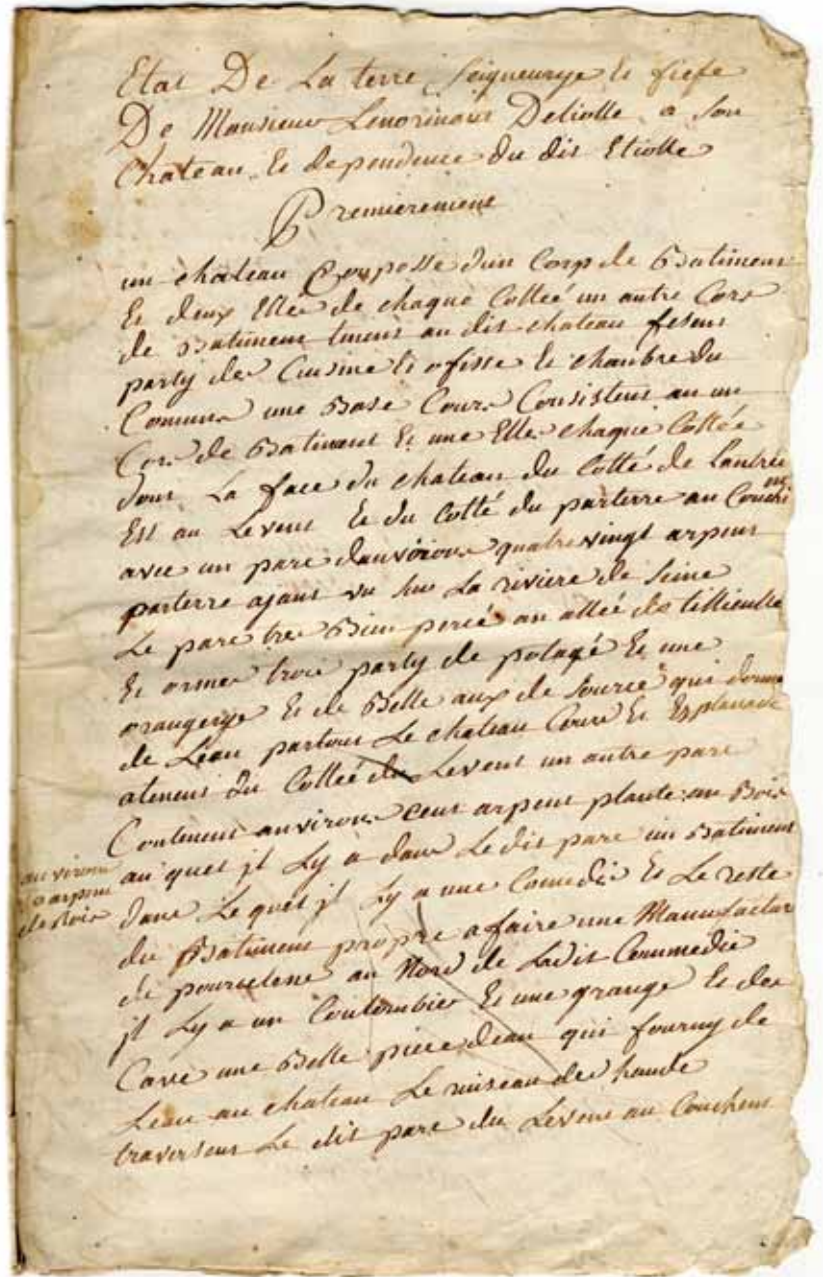 Etat De La terre Seigneurye et fiefe
De Monsieur Lenormant Detiolle a son
Chateau et dependence du dit Etiolle
Premierement
un chateau Compossé d'un Corp de Batiment
Et deux Elle de chaque Colleé un autre Cors
de Batiment tenent au dit chateau fesent
party de Cuisine et ofisse et chanbre du
Comune une Base Cour Consistent an un
Cors de Batiment Et une Elle chaque Collée
dont La face du chateau du Cotté de Lantrée
Est au Levent et du Cotté du parterre au Couchent
avec un parc d'anviron quatre vingt arpent
parterre ajant vu sur La riviere de Seine
Le parc tre Bien percé an alleé de tillieulle
Et orme troie party de potagé Et une
orangerye Et de Belle aux de Source qui donne
de Léau partout Le chateau Cour et Esplanade
atenent du Colleé du Levent un autre parc
Contenent anviron cent arpent planté an Bois
anviron
arpent
de Bois
au quel jl Ly a dans Le dit parc un Batiment
dans Le quel jl Ly a une Comedie Et Le reste
du Batiment propre a faire une Manufactur
de pourcelene au Nord de Ladit Commedie
jl Ly a un Coulombier Et une grange Et des
Cave une Belle piece deau qui fourny de
Leau au chateau Le ruiseau de haude
traversent Le dit parc du Levent au Couchent